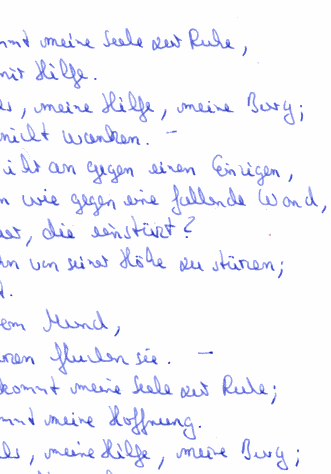 mmt meine Seele zur Ruhe,
mir Hilfe.
ls, meine Hilfe, meine Burg;
nicht wanken. –
ihr an gegen einen Einzigen,
n wie gegen eine fallende Wand,
uer, die einstürzt?
hn von seiner Höhe zu stürzen;
t.
em Mund,
ren fluchen sie. –
kommt meine Seele zur Ruhe;
mmt meine Hoffnung.
ls, meine Hilfe, meine Burg;